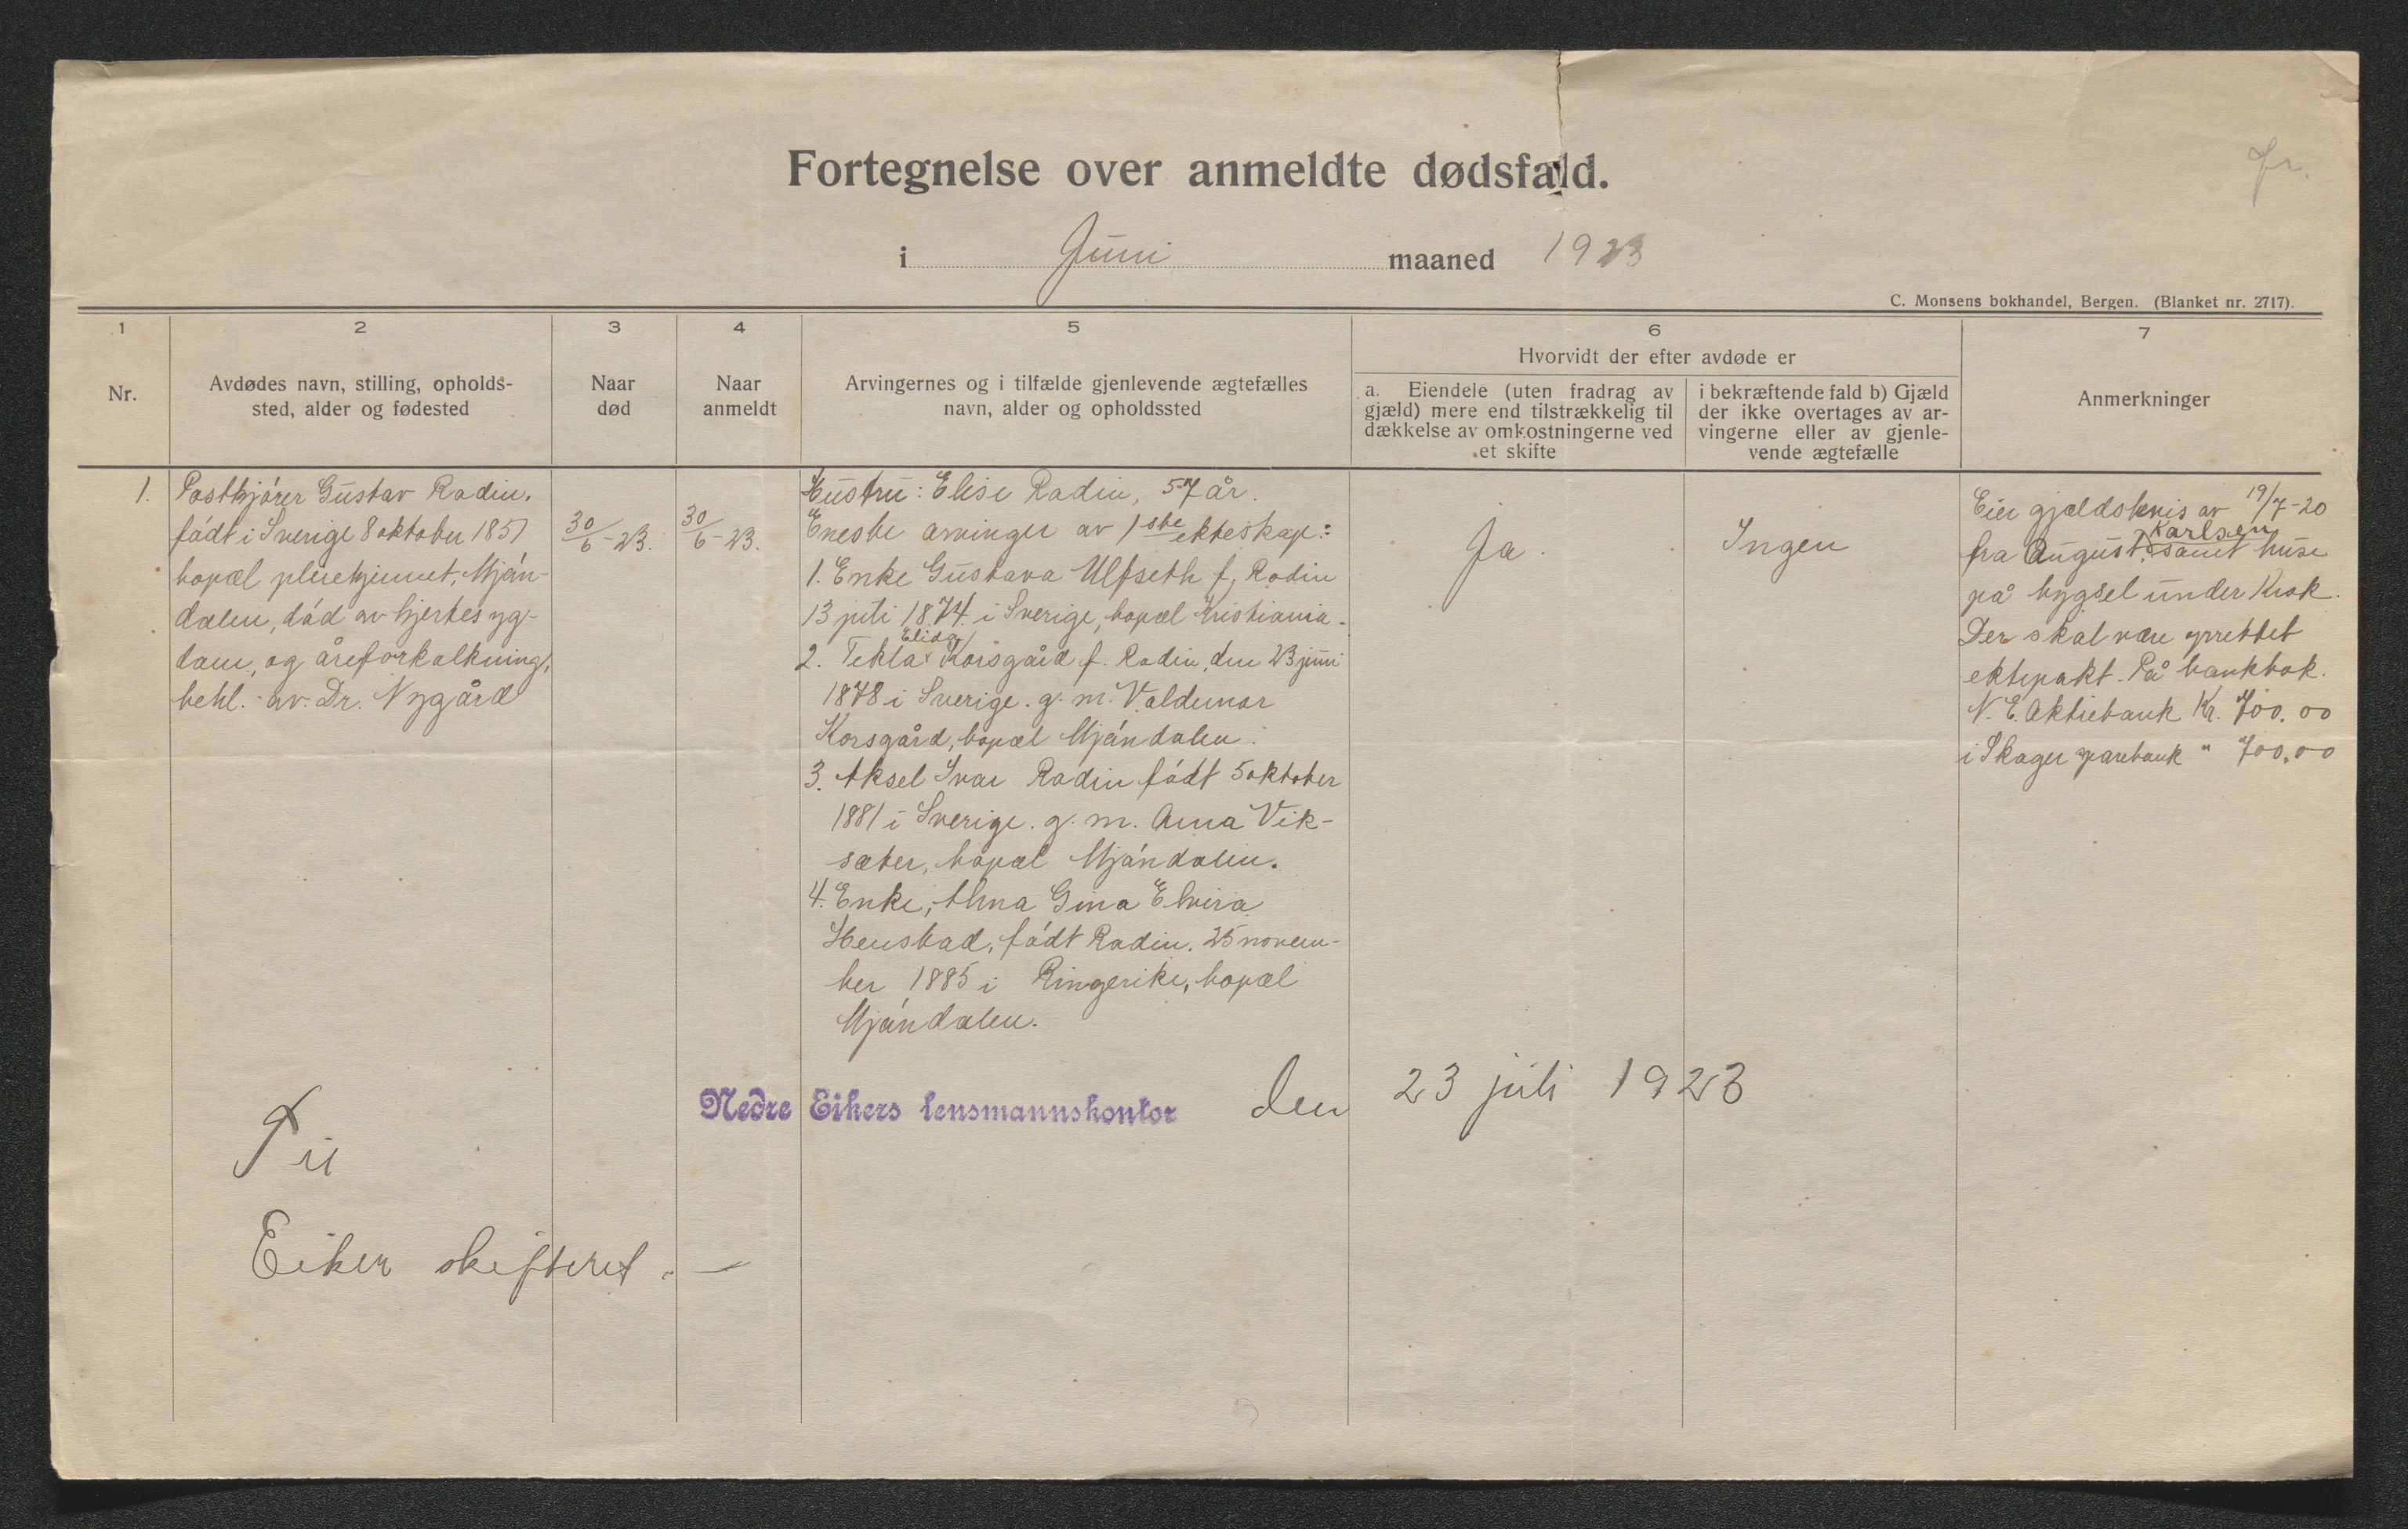 Fortegnelse over anmeldte dødsfald.
i Juni maaned 1923
C. Monsens bokhandel, Bergen. (Blanket nr. 2717).
1
2
3
4
5
6
7
Nr.
Avdødes navn, stilling, opholds-
sted, alder og fødested
Naar
død
Naar
anmeldt
Arvingernes og i tilfælde gjenlevende ægtefælles
navn, alder og opholdssted
Hvorvidt der efter avdøde er
a. Eiendele (uten fradrag av
gjæld) mere end tilstrækkelig til
dækkelse av omkostningerne ved
et skifte
i bekræftende fald b) Gjæld
der ikke overtages av ar-
vingerne eller av gjenle-
vende ægtefælle
Anmerkninger
1.
Postkjører Gustav Rodin.
født i Sverige 8 oktober 1851
bopæl pleiehjemmet, Mjøn-
dalen, død av hjertesyg-
dom, og åreforkalkning,
behl. av Dr. Nygård
30/6-23.
30/6-23.
Hustru: Elise Rodin, 57 år.
Eneste arvinger av 1ste ekteskap:
1. Enke Gustava Ulfseth f. Rodin
13 juli 1874 i Sverige, bopæl Kristiania.
2. Tekla Elida Korsgård f. Rodin, den 23 juni
1878 i Sverige. g. m. Valdemar
Korsgård, bopæl Mjøndalen.
3. Aksel Ivar Rodin født 5 oktober
1881 i Sverige. g. m. Anna Vik-
sæter, bopæl Mjøndalen.
4. Enke, Alma Gina Elvira
Henstad, født Rodin. 25 novem-
ber 1885 i Ringerike, bopæl
Mjøndalen.
Ja.
Ingen
Eier gjældsbevis av 19/7-20
fra August Karlsen samt huse
på bygsel under Krok.
Der skal være oprettet
ektepakt. På bankbok.
N. E. Aktiebank Kr. 700.00
i Skoger sparebank " 700.00
Nedre Eikers lensmannskontor den 23 juli 1923
Til
Eiker skifteret. —